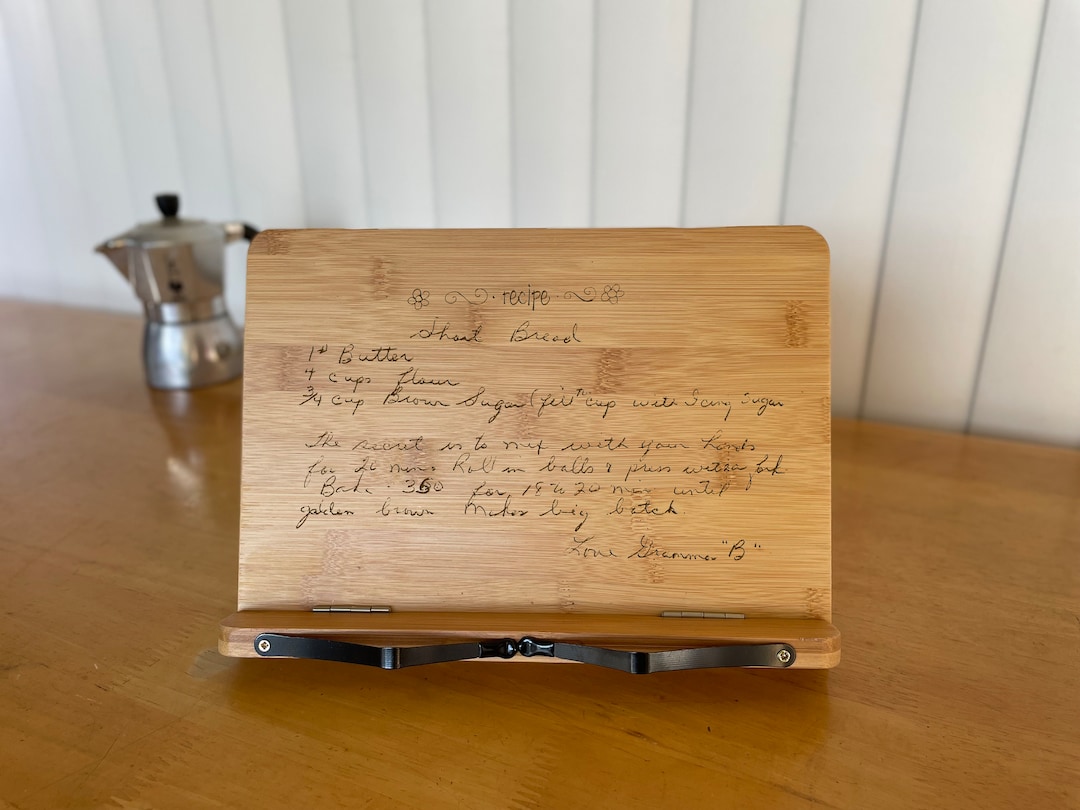 recipe
Short Bread
1# Butter
4 cups flour
3/4 cup Brown Sugar (fill cup with Icing Sugar
The secret is to mix with your hands
for 20 mins Roll in balls & press with a fork
Bake 350 for 18 to 20 min until
golden brown Makes big batch
Love Gramma "B"